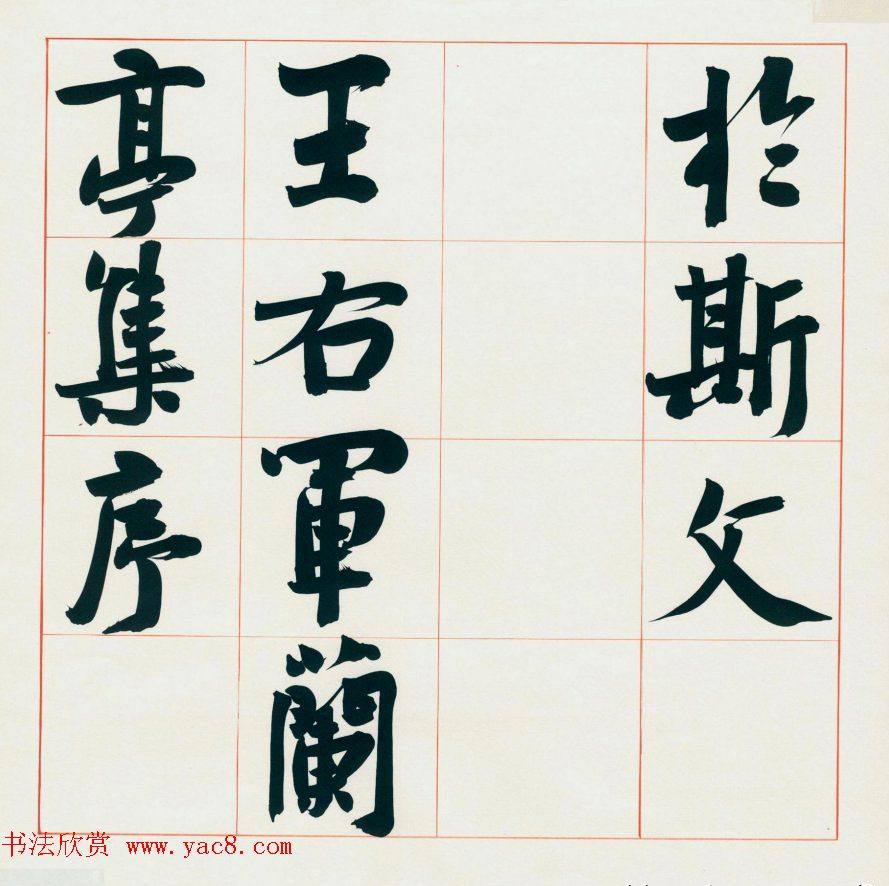 於斯文
王右軍蘭
亭集序
书法欣赏 www.yac8.com